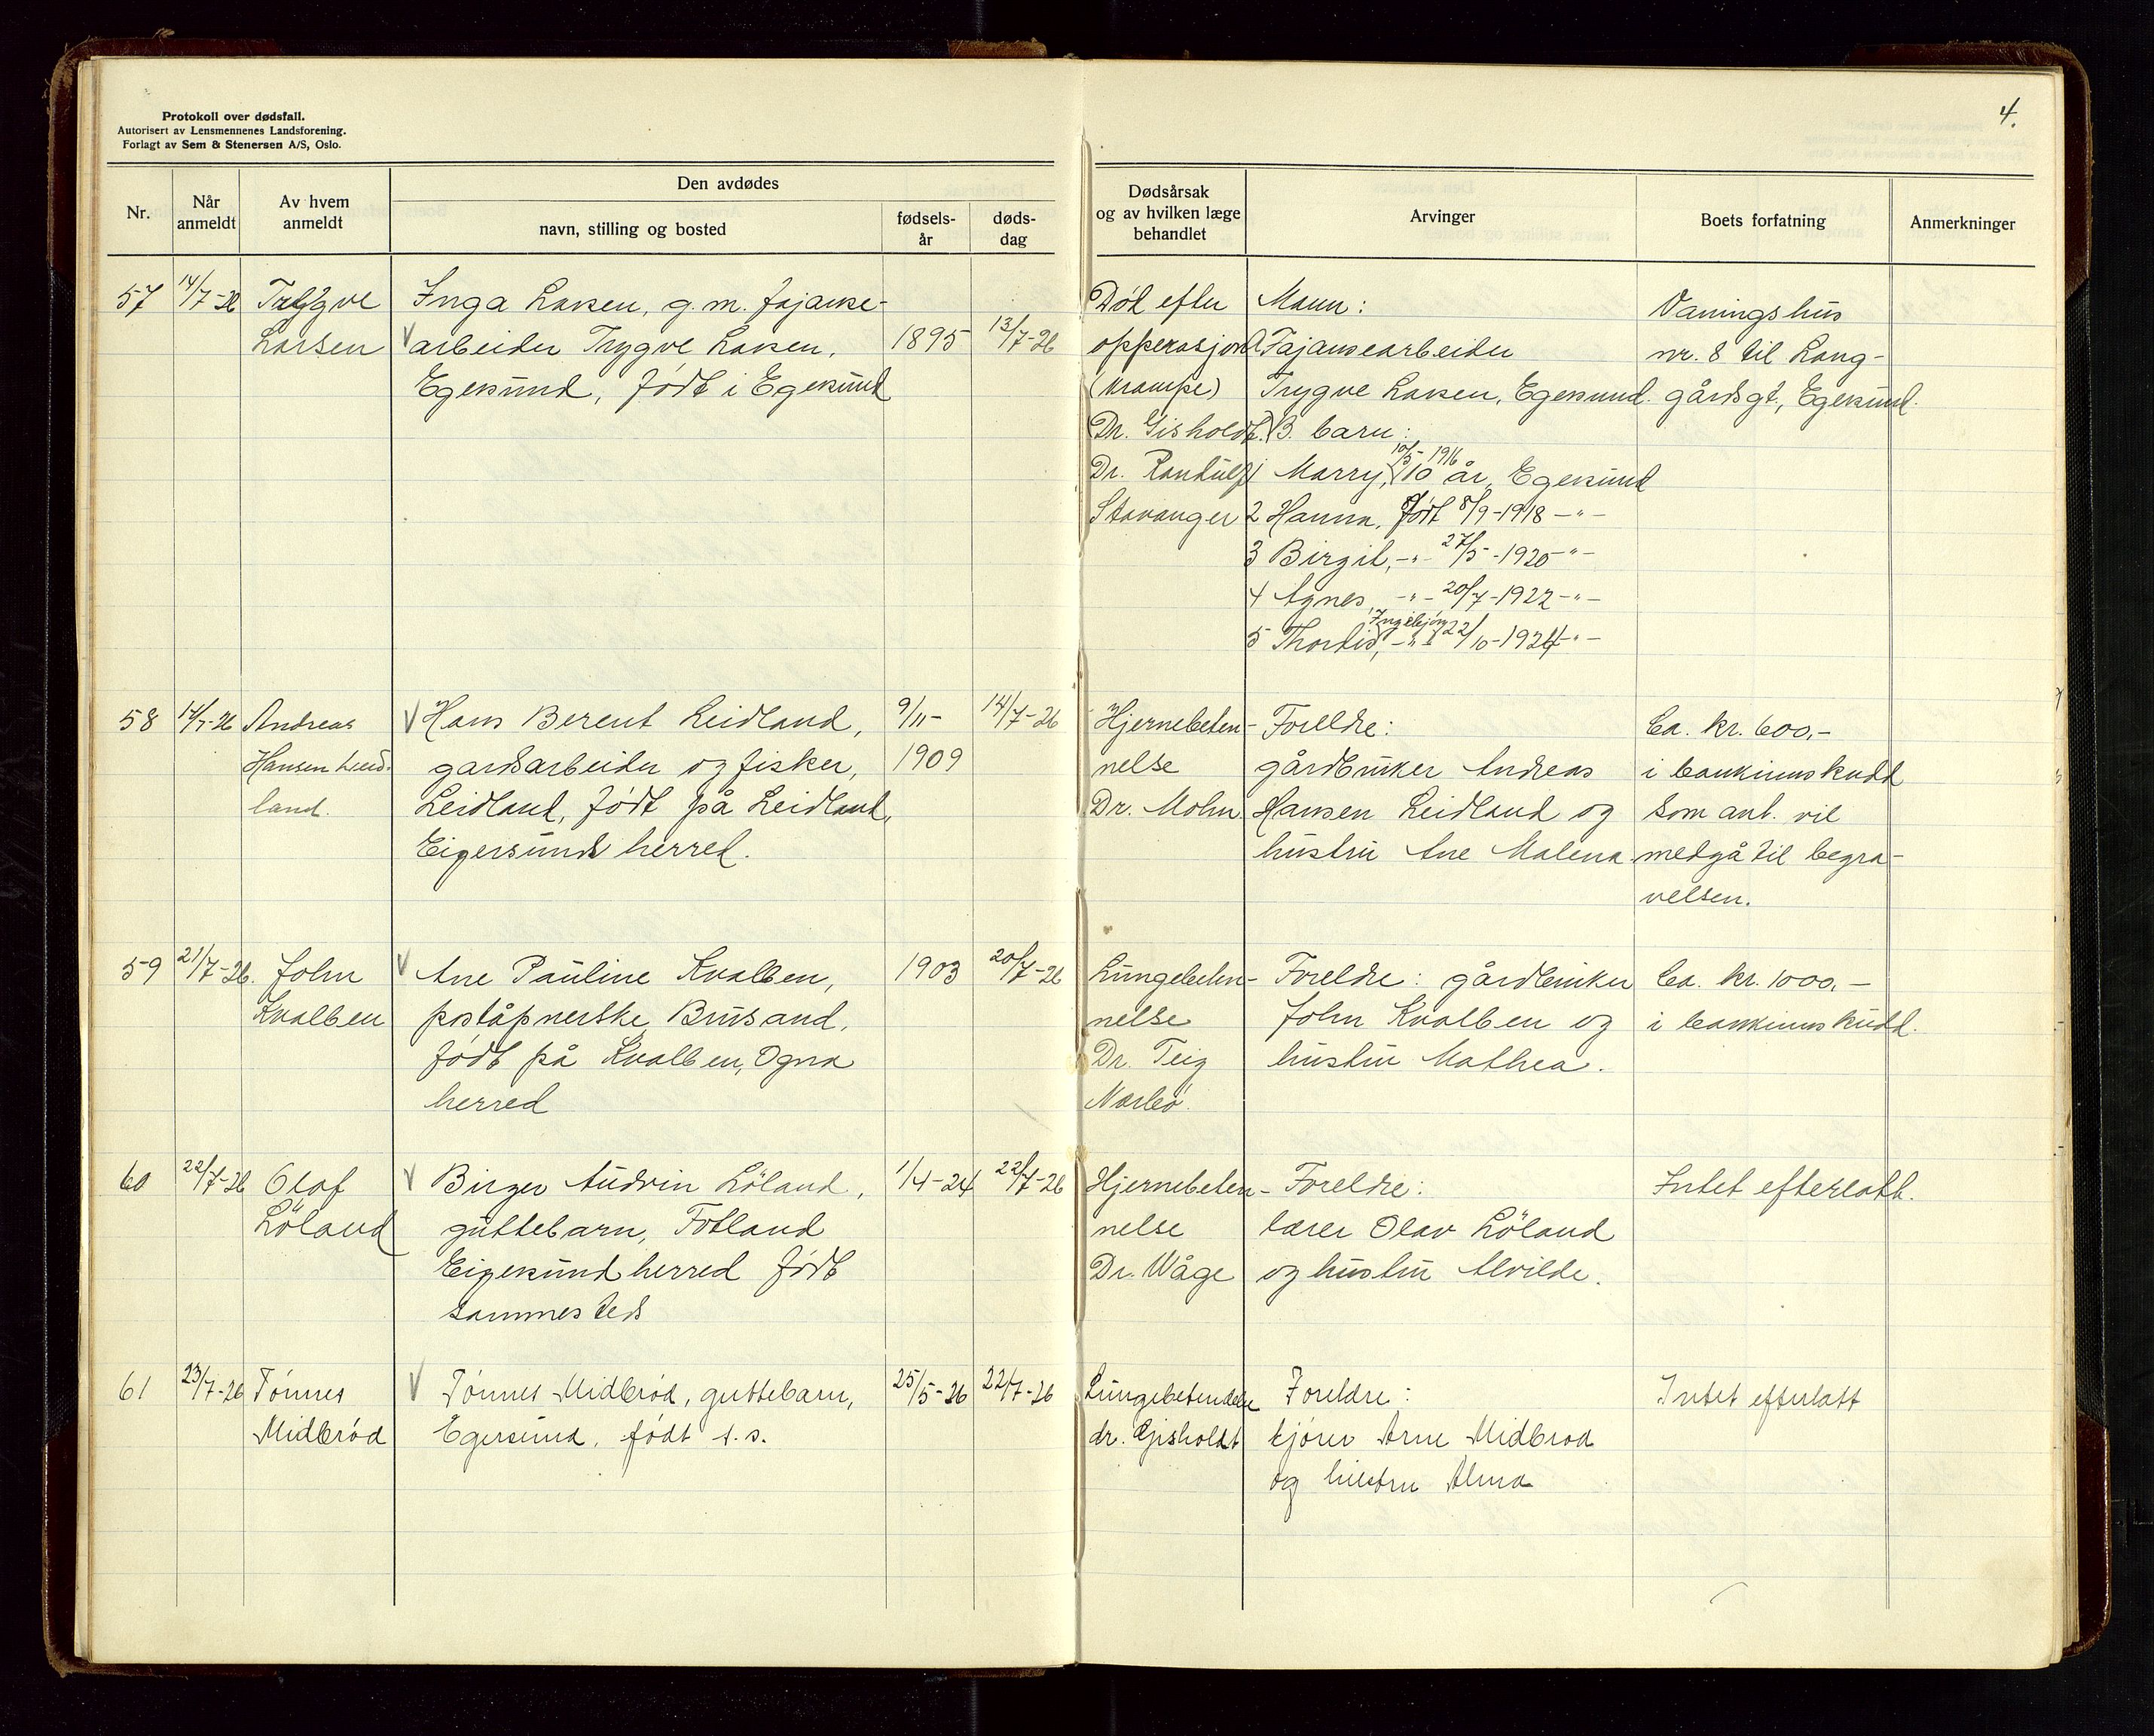 Protokoll over dødsfall.
Autorisert av Lensmennenes Landsforening.
Forlagt av Sem & Stenersen A/S, Oslo.
4.
Nr.
Når anmeldt
Av hvem anmeldt
Den avdødes
navn, stilling og bosted
fødsels-år
døds-dag
Dødsårsak og av hvilken læge behandlet
Arvinger
Boets forfatning
Anmerkninger
57
14/7-26
Trygve
Larsen
Inga Larsen, g.m. fajanse-
arbeider Trygve Larsen,
Egersund, født i Egersund
1895
13/7-26
Død efter
opperasjon
(krampe)
Dr. Gisholdt.
Dr. Randulf
Stavanger
Mann:
Fajansearbeider
Trygve Larsen, Egersund.
B. barn:
10/5-1916
1 Marry, 10 år, Egersund
2 Hanna, født 8/9-1918 -"-
3 Birgit, -"- 27/5-1920 -"-
4 Agnes, -"- 20/7-1922 -"-
Ingebjørg
5 Thordis, -"- 22/10-1924 -"-
Vaningshus
nr. 8 til Lang-
gårdsgt, Egersund.
58
14/7-26
Andreas
Hansen Leid-
land.
Hans Berent Leidland,
gardsarbeider og fisker,
Leidland, født på Leidland,
Eigersund herred.
9/11-
1909
14/7-26
Hjernebeten-
nelse
Dr. Mohn
Foreldre:
gårdbruker Andreas
Hansen Leidland og
hustru Ane Malena
Ca. kr. 600,-
i bankinnskudd
som ant. vil
medgå til begra-
velsen.
59
21/7-26.
John
Kvalben
Ane Pauline Kvalben,
poståpnerske, Brusand,
født på Kvalben, Ogna
herred
1903
20/7-26
Lungebeten-
nelse
Dr. Teig
Nærbø.
Foreldre: gårdbruker
John Kvalben og
hustru Mathea.
Ca. kr. 1000,-
i bankinnskudd.
60
22/7-26
Olaf
Löland
Birger Audvin Löland,
guttebarn, Fotland
Eigersund herred født
sammesteds
1/4-24
22/7-26
Hjernebeten-
nelse
Dr. Wåge
Foreldre:
lærer Olav Löland
og hustru Alvilde.
Intet efterlatt.
61
23/7-26
Tønnes
Midbrød
Tønnes Midbrød, guttebarn,
Egersund, født s.s.
25/5-26
22/7-26
Lungebetendelse
dr. Gisholdt
Foreldre:
kjører Arne Midbrød
og hustru Alma
Intet efterlatt